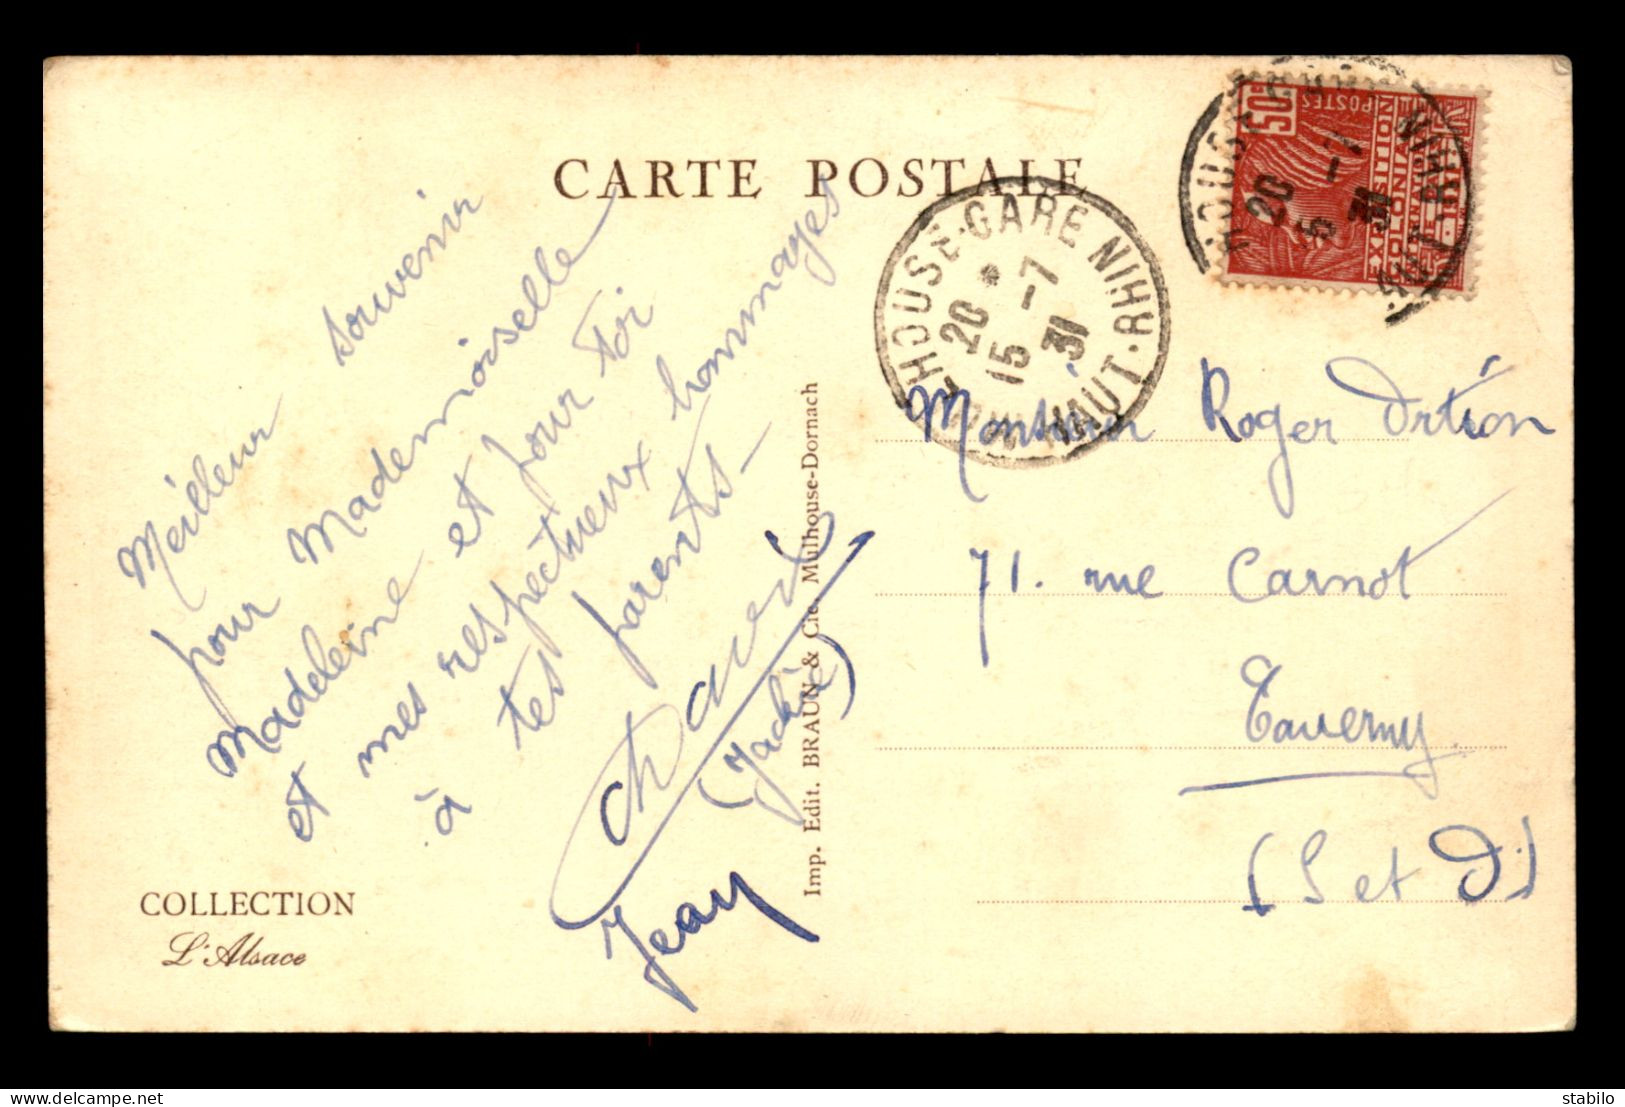 CARTE POSTALE
Meilleur souvenir
pour Mademoiselle
Madeleine et pour toi
et mes respectueux hommages
à tes parents -
Jean
COLLECTION
L'Alsace
Imp. Edit. BRAUN & Cie, Mulhouse-Dornach
50c
POSTES
MULHOUSE-GARE HAUT-RHIN
20
15-7
31
Monsieur Roger
71. rue Carnot
Taverny
(S et O)
www.delcampe.net
stabilo